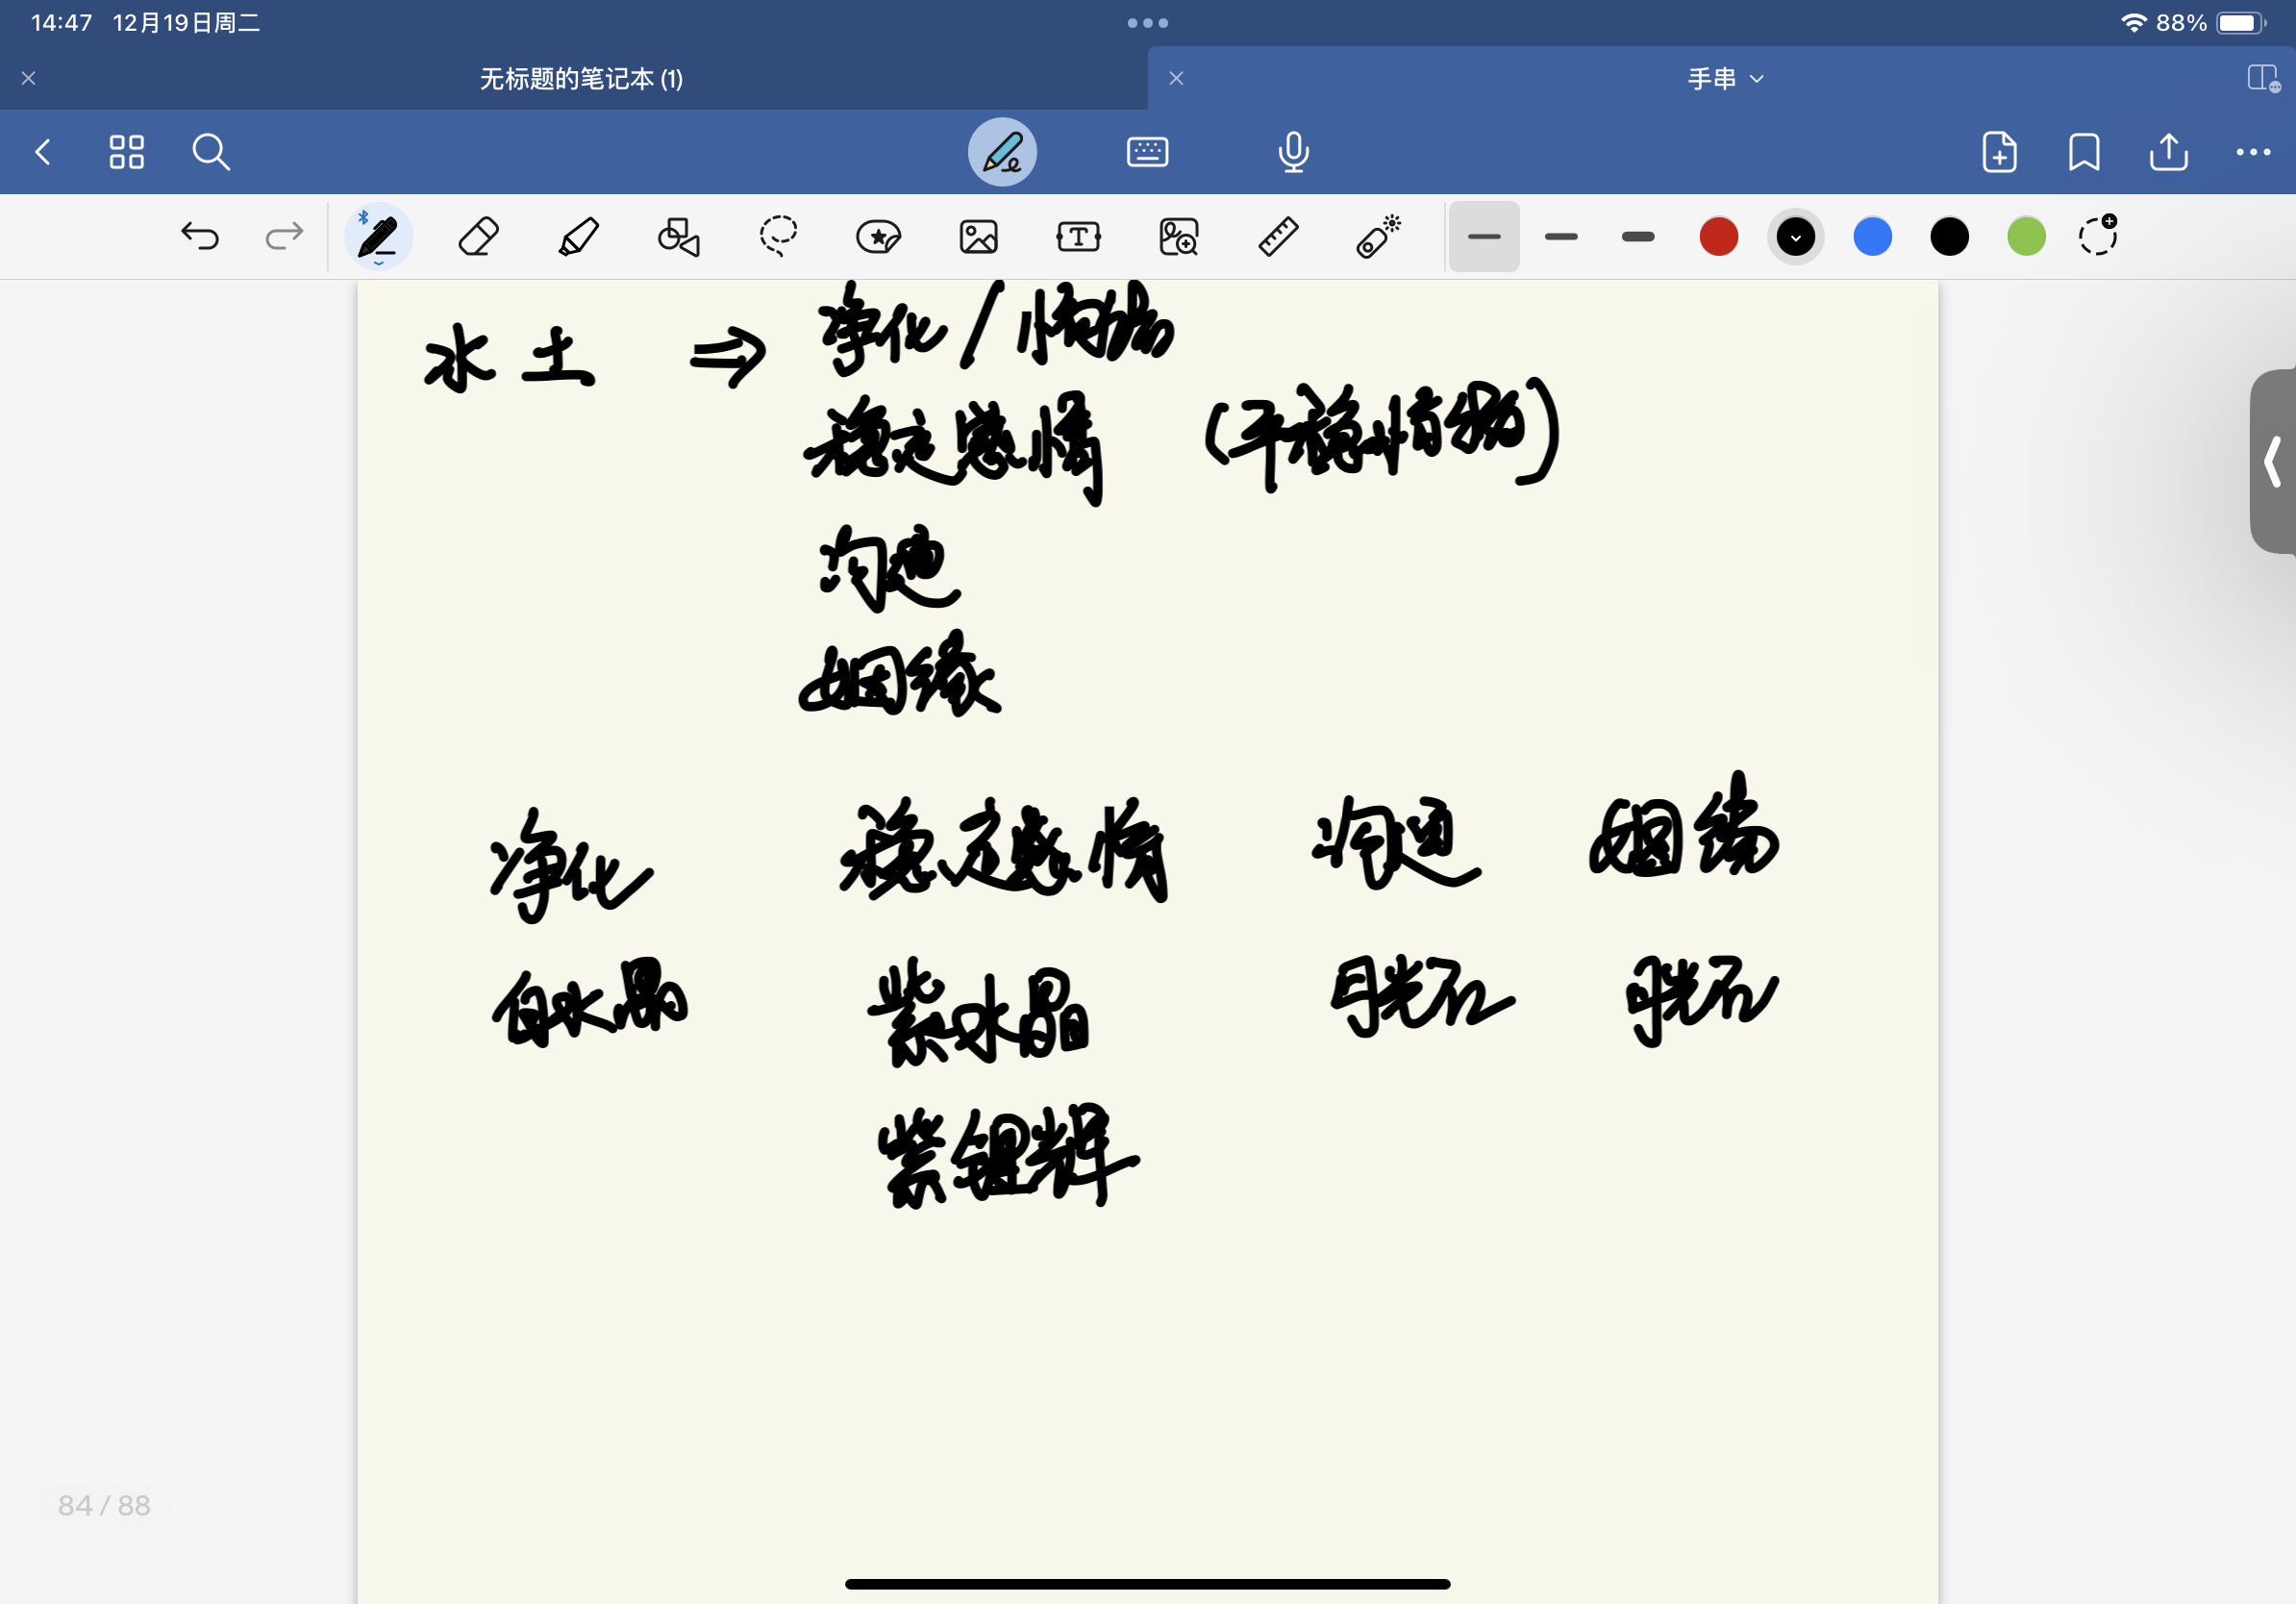 14:47 12月19日周二 88%
无标题的笔记本 (1) 手串
水 土 ⇒ 净化 /
稳定感情 (平稳情绪)
沟通
姻缘
净化 稳定感情 沟通 姻缘
白水晶 紫水晶 月光石 月光石
紫锂辉
84 / 88